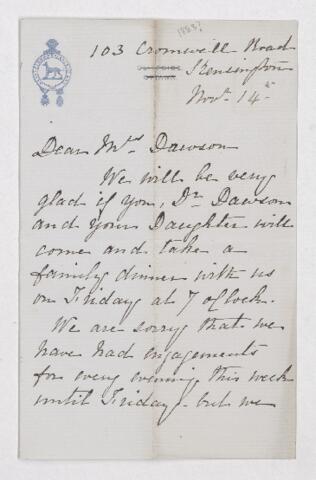 103 Cromwell Road
Kensington
Nov. 14
1883?
Dear Mrs Dawson
We will be very
glad if you, Dr Dawson
and your Daughter will
come and take a
family dinner with us
on Friday at 7 o'clock.
We are sorry that we
have had engagements
for every evening this week
until Friday - but we